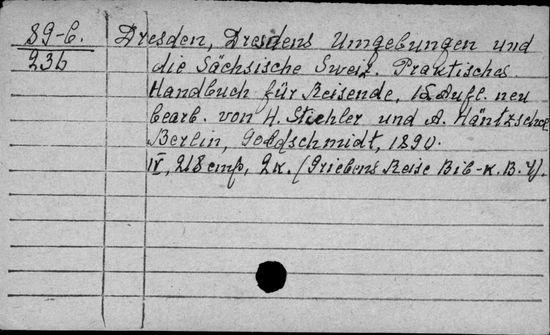 89-6. Dresden, Dresdens Umgebungen und
236 die Sächsische Sweiz. Praktisches
Handbuch für Reisende. 15 Aufl. neu
bearb. von H. Stiehler und A. Häntzschel
Berlin, Goldschmidt, 1890.
IV, 218 стр, 2 к. (Griebens Reise Bib-k. B. 4).